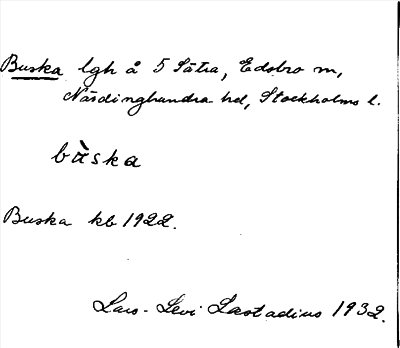 Buska lgh å 5 Sätra, Edsbro sn,
Närdinghundra hd, Stockholms l.
bàska
Buska kb 1922.
Lars-Levi Læstadius 1932.